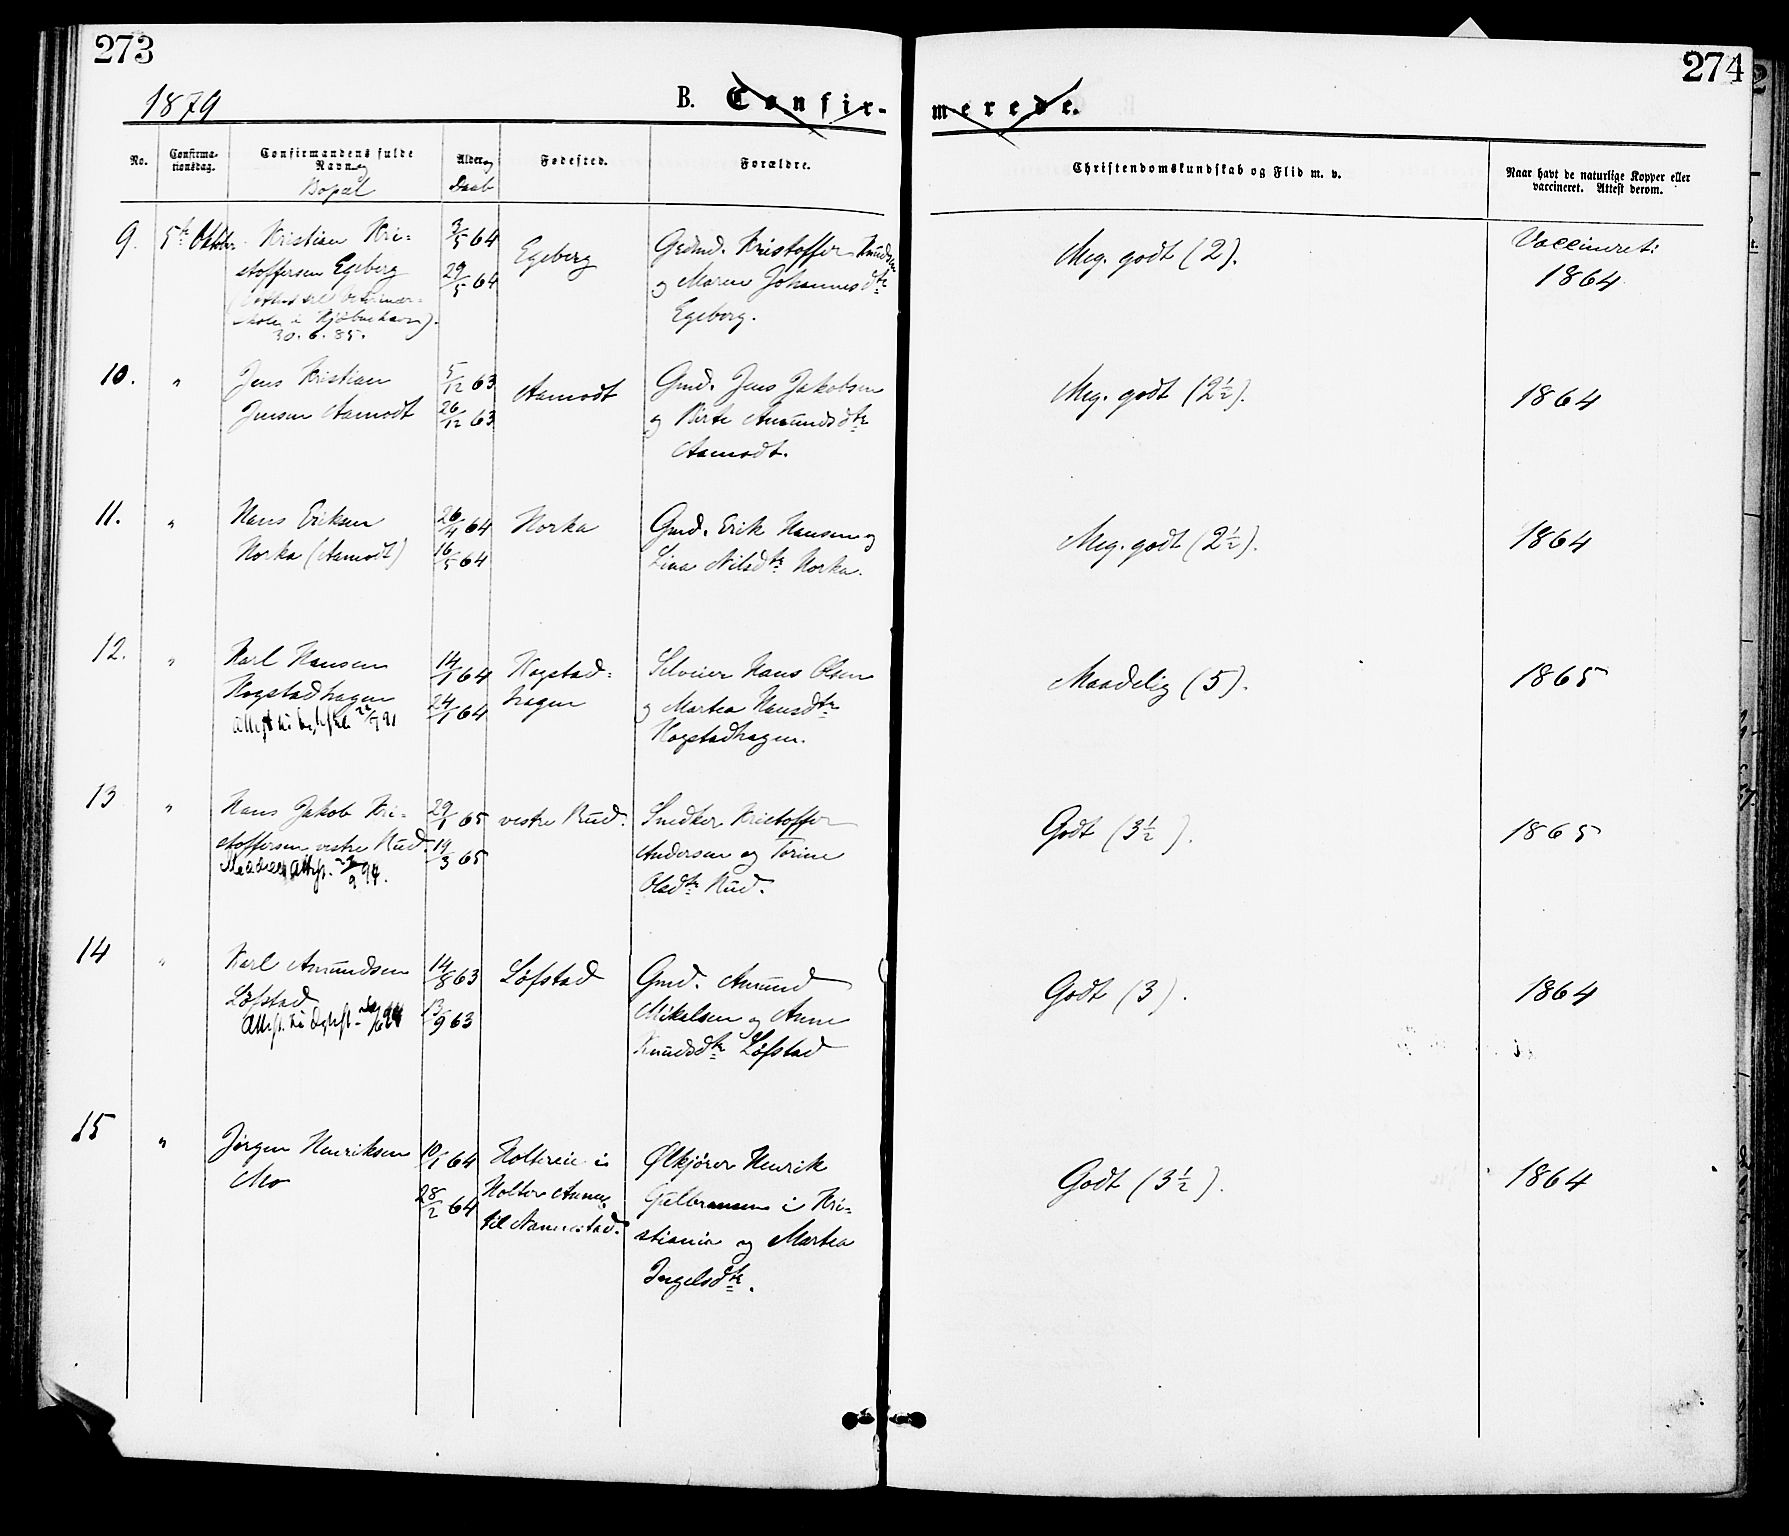 273
274
1879
B. Confir-
merede.
No.
Confirma-
tionsdag.
Confirmandens fulde
Navn og
Bopæl
Alder og
Daab
Fødested.
Forældre.
Christendomskundskab og Flid m. v.
Naar havt de naturlige Kopper eller
vaccineret. Attest derom.
9. 5te Oktober Kristian Kri-
stoffersen Egeberg
skolen i Kjøbenhavn).
30.6.85.
3/5 64
29/5 64
Egeberg
Grdmd. Kristoffer Knudsen
og Maren Johannesdtr
Egeberg.
Meg. godt (2).
Vaccineret:
1864
10. " Jens Kristian
Jensen Aamodt
5/12 63
26/12 63
Aamodt
Gmd. Jens Jakobsen
og Birte Amundsdtr
Aamodt.
Meg. godt (2½).
1864
11. " Hans Eriksen
Horka (Aamodt)
26/4 64
16/5 64
Horka
Gmd. Erik Hansen og
Lina Nilsdtr Horka.
Meg. godt (2½).
1864
12. " Karl Hansen
Kogstadhagen
14/1 64
24/1 64
Kogstad-
hagen
Selveier Hans Olsen
og Martea Hansdtr
Kogstadhagen.
Maadelig (5).
1865
13 " Hans Jakob Kri-
stoffersen vestre Rud.
29/1 65
19/3 65
vestre Rud.
Snedker Kristoffer
Andersen og Torine
Olsdtr Rud.
Godt (3½).
1865
14 " Karl Amundsen
Løfstad
14/8 63
13/9 63
Løfstad
Gmd. Amund
Mikelsen og Anne
Knudsdtr Løfstad
Godt (3).
1864
15 " Jørgen Henriksen
Mo
10/1 64
28/2 64
Holtereie i
Holter Annex
til Nannestad.
Ølkjører Henrik
Gulbransen i Kri-
stiania og Martea
Ingelsdtr.
Godt (3½).
1864